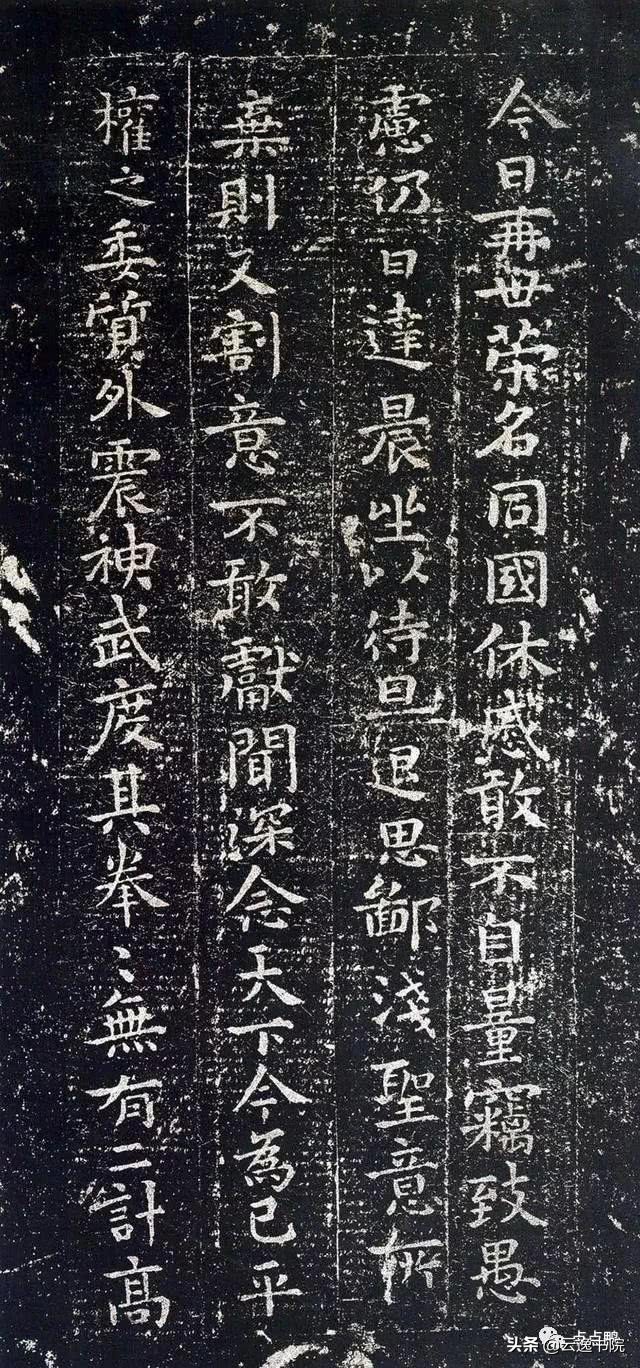 今日再世荣名同國休慼敢不自量竊致愚
慮仍日達晨坐以待旦退思鄙淺聖意所
棄則又割意不敢獻聞深念天下今為已平
權之委質外震神武度其拳〻無有二計高
一点点鸭
头条 @云逸书院